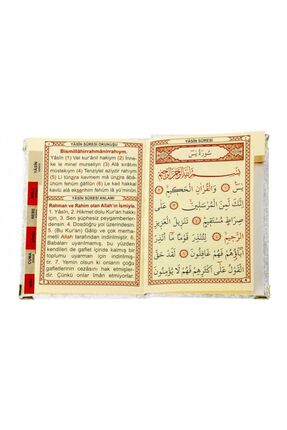 YÂSİN SÛRESİ OKUNUŞU
Bismillâhirrahmânirrahıym.
Yâsîn (1) Vel kur'ânil hakiym (2) İnne-
ke le minel murseliyn (3) Alâ sırâtim
müstekıym (4) Tenziylel aziyzir rahiym
(5) Li tünzira kavmem mâ ünzira âbâ-
ühüm fehüm ğâfilûn (6) Le kad hakkal
kavlü alâ ekserihim fehüm lâ yü'minûn
YÂSİN SÛRESİ ANLAMI
Rahman ve Rahim olan Allah'ın ismiyle.
1. Yâsîn, 2. Hikmet dolu Kur'an hakkı
için, 3. Sen şüphesiz peygamberler-
densin. 4. Dosdoğru yol üzerindesin.
5. (Bu Kur'an) Gâlip ve çok merha-
metli Allah tarafından indirilmiştir. 6.
Babaları uyarılmamış, bu yüzden
kendileri de gaflet içinde kalmış bir
toplumu uyarman için indirilmiştir.
7. Yemin olsun ki onların çoğu
gafletlerinin cezasını hak etmişler-
dir. Çünkü onlar İman etmezler.
YÂSİN SÛRESİ
سُورَةُ يٰسٓ
بِسْمِ اللّٰهِ الرَّحْمٰنِ الرَّحِيمِ
يٰسٓ ﴿١﴾ وَالْقُرْاٰنِ الْحَكِيمِ ﴿٢﴾
اِنَّكَ لَمِنَ الْمُرْسَلِينَ ﴿٣﴾ عَلٰى
صِرَاطٍ مُسْتَقِيمٍ ﴿٤﴾ تَنْزِيلَ الْعَزِيزِ
الرَّحِيمِ ﴿٥﴾ لِتُنْذِرَ قَوْمًا مَٓا اُنْذِرَ
اٰبَٓاؤُ۬هُمْ فَهُمْ غَافِلُونَ ﴿٦﴾ لَقَدْ حَقَّ
الْقَوْلُ عَلٰٓى اَكْثَرِهِمْ فَهُمْ لَا يُؤْمِنُونَ
YÂSİN
CUMA